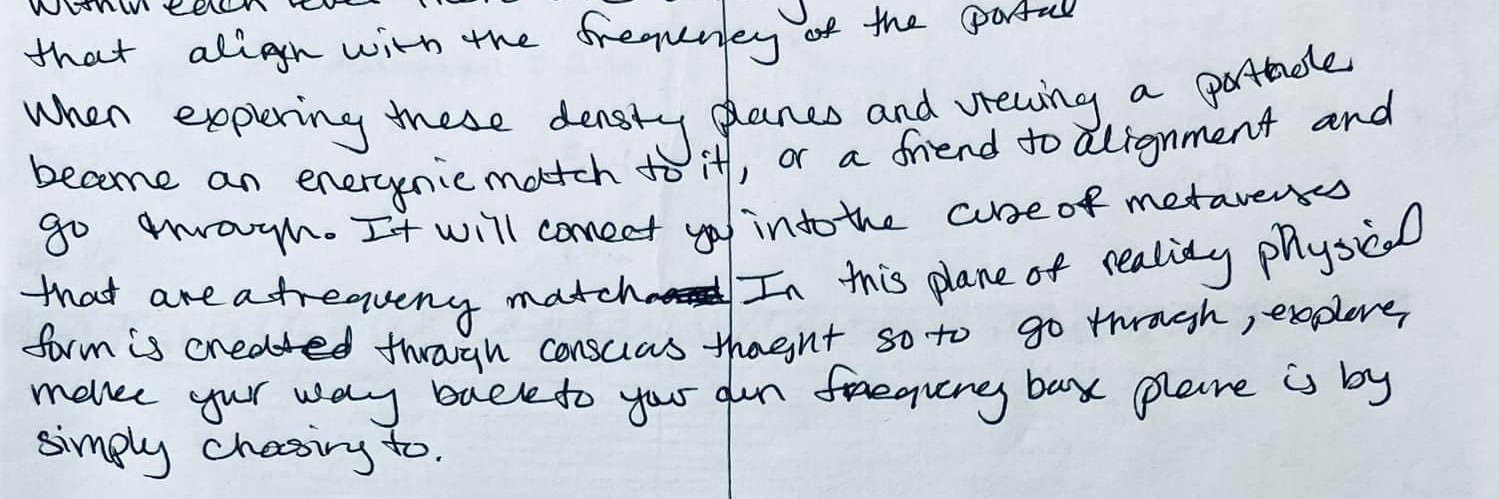 within each level
that align with the frequency of the portal
When exploring these density planes and viewing a porthole
become an energenic match to it, or a friend to alignment and
go through. It will connect you into the cube of metaverses
that are a frequency match In this plane of reality physical
form is created through conscias thought so to go through, explore,
make your way back to your own frequency base plane is by
simply choosing to.